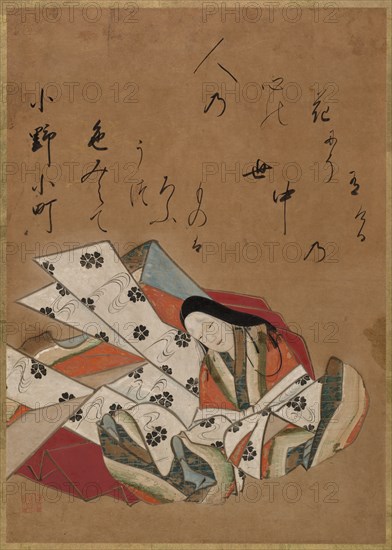 小野小町
色みえて
うつ
ろふ
ものは
世
中
乃
人乃
心の
花にそ
PHOTO12